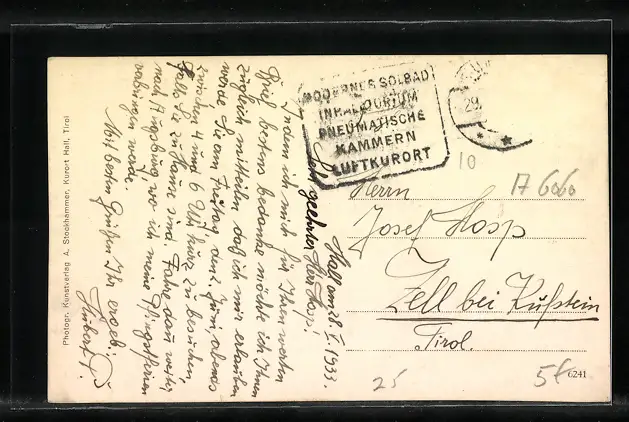 MODERNES SOLBAD
INHALATORIUM
PNEUMATISCHE
KAMMERN
LUFTKURORT
29.
10
Herrn
A 6060
Josef Hosp
Zell bei Kufstein
Tirol.
25
6241
Hall am 28. V. 1933.
Sehr geehrter Herr Hosp!
Indem ich mich für Ihren werten
Brief bestens bedanke möchte ich Ihnen
zugleich mitteilen daß ich mir erlauben
werde Sie am Freitag den 2. Juni, abends
zwischen 4 und 6 Uhr kurz zu besuchen,
falls Sie zu Hause sind. Fahre dann weiter
nach Augsburg wo ich meine Pfingstferien
verbringen werde.
Mit besten Grüßen Ihr ergeb.
Hubert
Photogr. Kunstverlag A. Stockhammer, Kurort Hall, Tirol